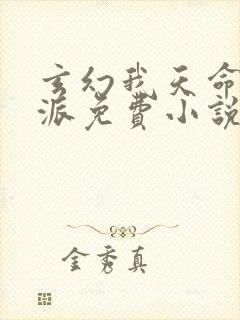 玄幻我天命
派免費小說
金秀真